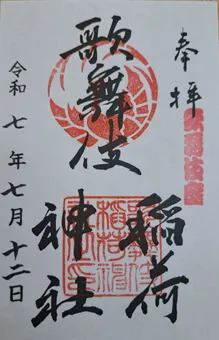 奉拝
歌舞伎
稲荷
神社
令和七年七月十二日